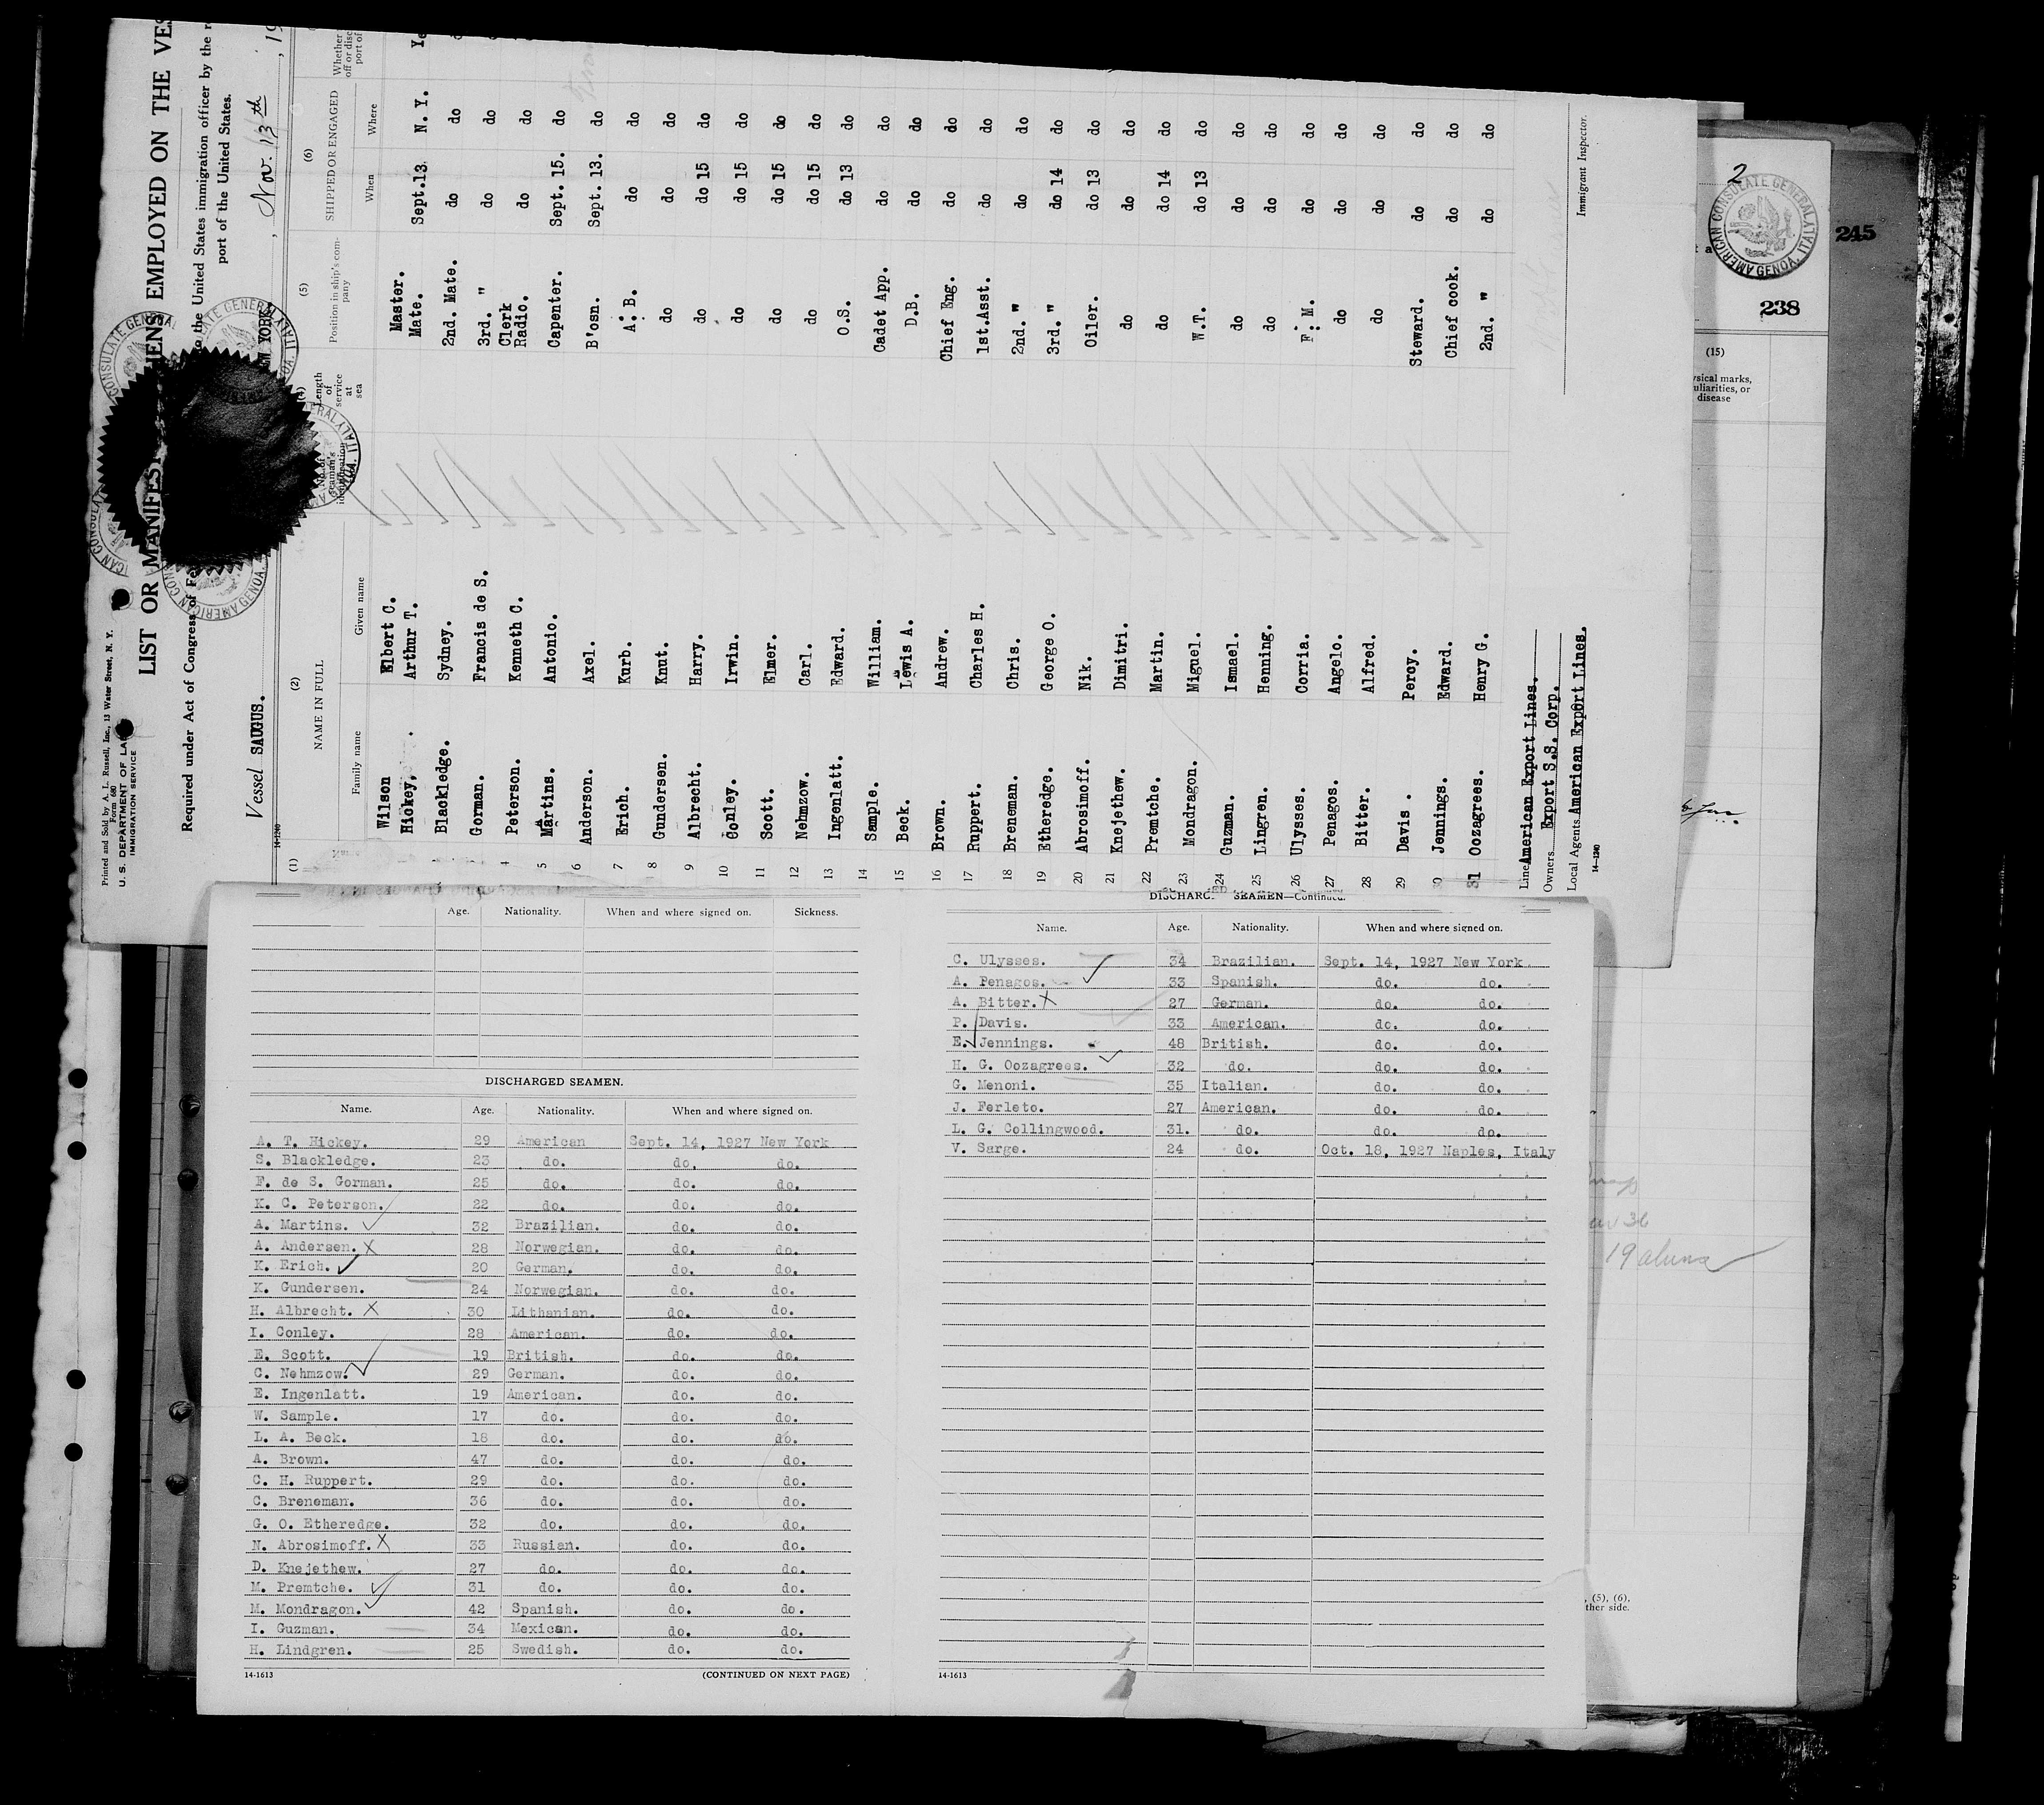 Printed and Sold by A. L. Russell, Inc., 13 Water Street, N. Y.
Form 680
U. S. DEPARTMENT OF
IMMIGRATION SERVICE
LIST OR MANIFEST EMPLOYED ON THE
Required under Act of Congress of the United States immigration officer by the
port of the United States.
Vessel SAUGUS. , Nov. 13th , 19
14-1240
(1) (2) (5) (6)
NAME IN FULL Length of service at sea Position in ship's company SHIPPED OR ENGAGED
Family name Given name When Where
Wilson Elbert C. Master.
Hickey, Arthur T. Mate. Sept.13. N. Y.
Blackledge. Sydney. 2nd. Mate. do do
Gorman. Francis de S. 3rd. " do do
4 Peterson. Kenneth C. Clerk Radio. do do
5 Martins. Antonio. Capenter. Sept. 15. do
6 Anderson. Axel. B'osn. Sept. 13. do
7 Erich. Kurb. A. B. do do
8 Gundersen. Knut. do do do
9 Albrecht. Harry. do do 15 do
10 Conley. Irwin. do do 15 do
11 Scott. Elmer. do do 15 do
12 Nehmzow. Carl. do do 15 do
13 Ingenlatt. Edward. O.S. do 13 do
14 Sample. William. Cadet App. do do
15 Beck. Lewis A. D.B. do do
16 Brown. Andrew. Chief Eng. do do
17 Ruppert. Charles H. 1st.Asst. do do
18 Breneman. Chris. 2nd. " do do
19 Etheredge. George O. 3rd. " do 14 do
20 Abrosimoff. Nik. Oiler. do 13 do
21 Knejethew. Dimitri. do do do
22 Premtche. Martin. do do 14 do
23 Mondragon. Miguel. W.T. do 13 do
24 Guzman. Ismael. do do do
25 Lingren. Henning. do do do
26 Ulysses. Corria. F. M. do do
27 Penagos. Angelo. do do do
28 Bitter. Alfred. do do do
29 Davis . Percy. Steward. do do
30 Jennings. Edward. Chief cook. do do
31 Oozagrees. Henry G. 2nd. " do do
Line American Export Lines.
Owners Export S.S. Corp.
Local Agents American Export Lines.
14-1240
Immigrant Inspector.
2
AMERICAN CONSULATE GENERAL
GENOA, ITALY
245
238
(15)
disease
, (5), (6).
19 aliens
Age. Nationality. When and where signed on. Sickness.
DISCHARGED SEAMEN.
Name. Age. Nationality. When and where signed on.
A. T. Hickey. 29 American Sept. 14, 1927 New York
S. Blackledge. 23 do. do. do.
F. de S. Gorman. 25 do. do. do.
K. C. Peterson. 22 do. do. do.
A. Martins. 32 Brazilian. do. do.
A. Andersen. X 28 Norwegian. do. do.
K. Erich. 20 German. do. do.
K. Gundersen. 24 Norwegian. do. do.
H. Albrecht. X 30 Lithanian. do. do.
I. Conley. 28 American. do. do.
E. Scott. 19 British. do. do.
C. Nehmzow. 29 German. do. do.
E. Ingenlatt. 19 American. do. do.
W. Sample. 17 do. do. do.
L. A. Beck. 18 do. do. do.
A. Brown. 47 do. do. do.
C. H. Ruppert. 29 do. do. do.
C. Breneman. 36 do. do. do.
G. O. Etheredge. 32 do. do. do.
N. Abrosimoff. X 33 Russian. do. do.
D. Knejethew. 27 do. do. do.
M. Premtche. 31 do. do. do.
M. Mondragon. 42 Spanish. do. do.
I. Guzman. 34 Mexican. do. do.
H. Lindgren. 25 Swedish. do. do.
14-1613 (CONTINUED ON NEXT PAGE)
DISCHARGED SEAMEN—Continued.
Name. Age. Nationality. When and where signed on.
C. Ulysses. 34 Brazilian. Sept. 14, 1927 New York.
A. Penagos. 33 Spanish. do. do.
A. Bitter. X 27 German. do. do.
P. Davis. 33 American. do. do.
E. Jennings. 48 British. do. do.
H. G. Oozagrees. 32 do. do. do.
G. Menoni. 35 Italian. do. do.
J. Ferleto. 27 American. do. do.
L. G. Collingwood. 31. do. do. do.
V. Sarge. 24 do. Oct. 18, 1927 Naples, Italy
14-1613